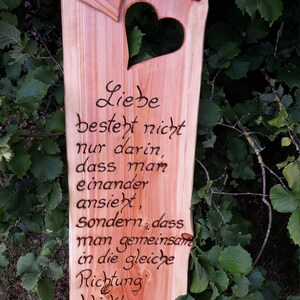 Liebe
besteht nicht
nur darin,
dass man
einander
ansieht,
sondern, dass
man gemeinsam
in die gleiche
Richtung